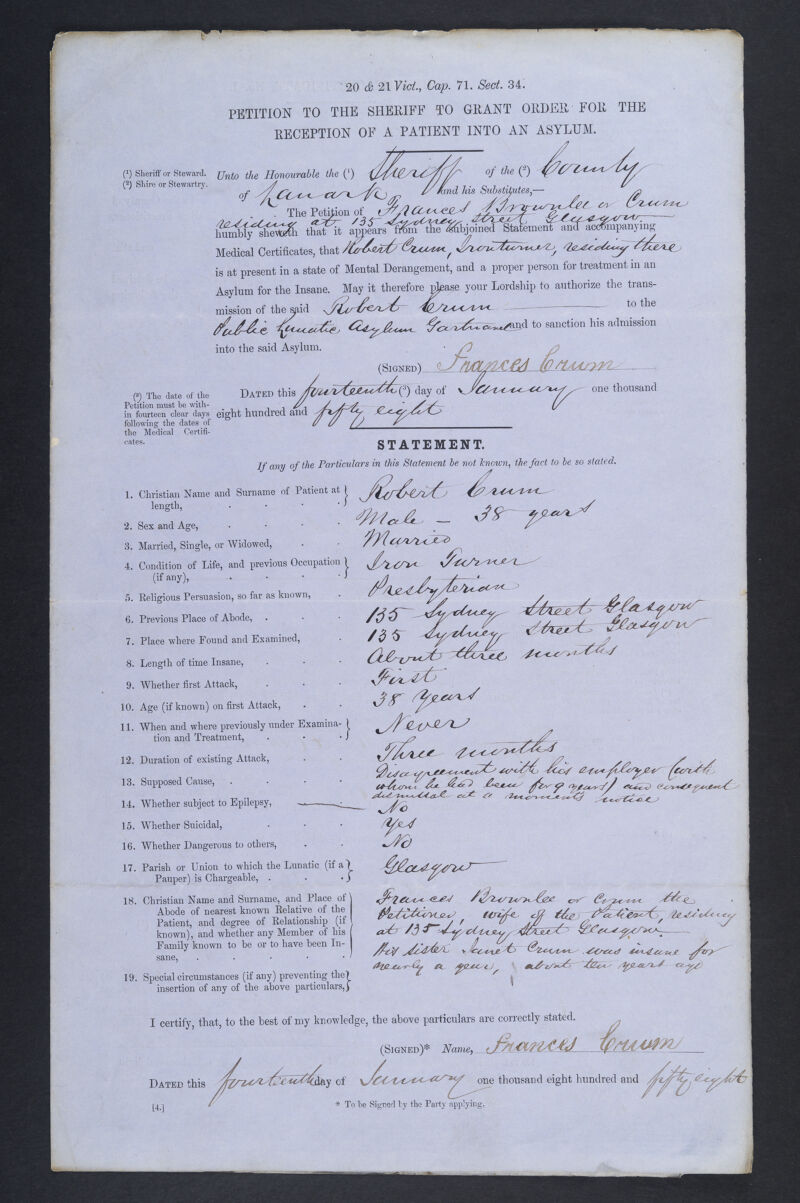 20 & 21 Vict., Cap. 71. Sect. 34.
PETITION TO THE SHERIFF TO GRANT ORDER FOR THE
RECEPTION OF A PATIENT INTO AN ASYLUM.
(¹) Sheriff or Steward.
(²) Shire or Stewartry.
Unto the Honourable the (¹) Sheriff of the (²) County
of Lanark and his Substitutes,—
The Petition of Frances Brownlee or Crum
residing at 135 Sydney Street Glasgow
humbly sheweth that it appears from the subjoined Statement and accompanying
Medical Certificates, that Robert Crum, Ironturner, residing there
is at present in a state of Mental Derangement, and a proper person for treatment in an
Asylum for the Insane. May it therefore please your Lordship to authorize the trans-
mission of the said Robert Crum to the
Public Lunatic Asylum Gartnavel and to sanction his admission
into the said Asylum.
(SIGNED) Frances Crum
(³) The date of the
Petition must be with-
in fourteen clear days
following the dates of
the Medical Certifi-
cates.
DATED this fourteenth (³) day of January one thousand
eight hundred and fifty eight
STATEMENT.
If any of the Particulars in this Statement be not known, the fact to be so stated.
1. Christian Name and Surname of Patient at Robert Crum
length,
2. Sex and Age, Male — 38 years
3. Married, Single, or Widowed, Married
4. Condition of Life, and previous Occupation Iron Turner
(if any),
5. Religious Persuasion, so far as known, Presbyterian
6. Previous Place of Abode, 135 Sydney Street Glasgow
7. Place where Found and Examined, 135 Sydney Street Glasgow
8. Length of time Insane, About three months
9. Whether first Attack, First
10. Age (if known) on first Attack, 38 Years
11. When and where previously under Examina- Never
tion and Treatment,
12. Duration of existing Attack, Three months
13. Supposed Cause, Disagreement with his employer (with
whom he had been for 9 years) and consequent
dismissal at a moments notice
14. Whether subject to Epilepsy, No
15. Whether Suicidal, Yes
16. Whether Dangerous to others, No
17. Parish or Union to which the Lunatic (if a Glasgow
Pauper) is Chargeable,
18. Christian Name and Surname, and Place of Frances Brownlee or Crum the
Abode of nearest known Relative of the Petitioner, wife of the Patient, residing
Patient, and degree of Relationship (if at 135 Sydney Street Glasgow.
known), and whether any Member of his
Family known to be or to have been In- His sister Janet Crum was insane for
sane, nearly a year, about ten years ago
19. Special circumstances (if any) preventing the
insertion of any of the above particulars,
I certify, that, to the best of my knowledge, the above particulars are correctly stated.
(SIGNED)* Name, Frances Crum
DATED this fourteenth day of January one thousand eight hundred and fifty eight
[4.]
* To be Signed by the Party applying.